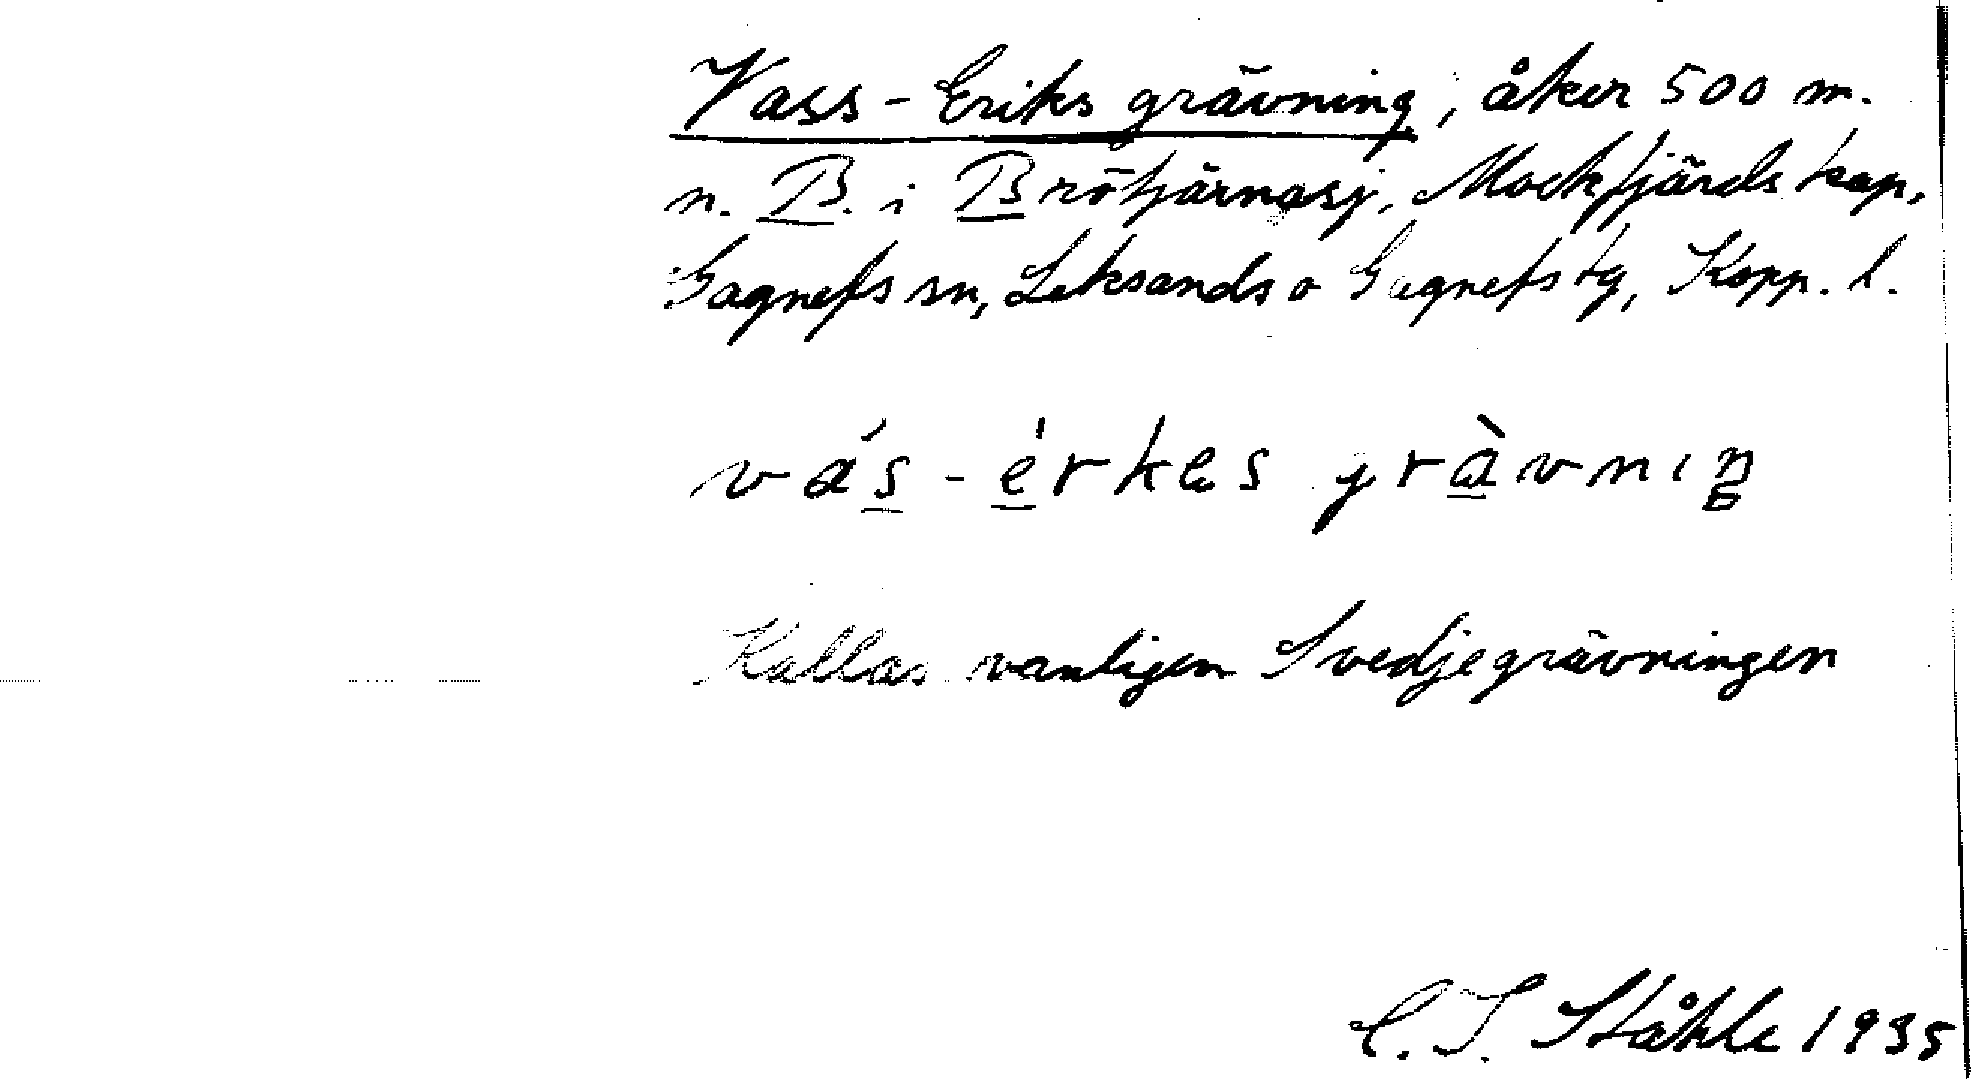 Vass-Eriks grävning, åker 500 m.
n. B. i Brötjärnasj, Mockfjärds kap,
Gagnefs sn, Leksands o Gagnefs tg, Kopp. l.
vás-érkes gràvniŋ
Kallas vanligen Svedjegrävningen
C. I. Ståhle 1935